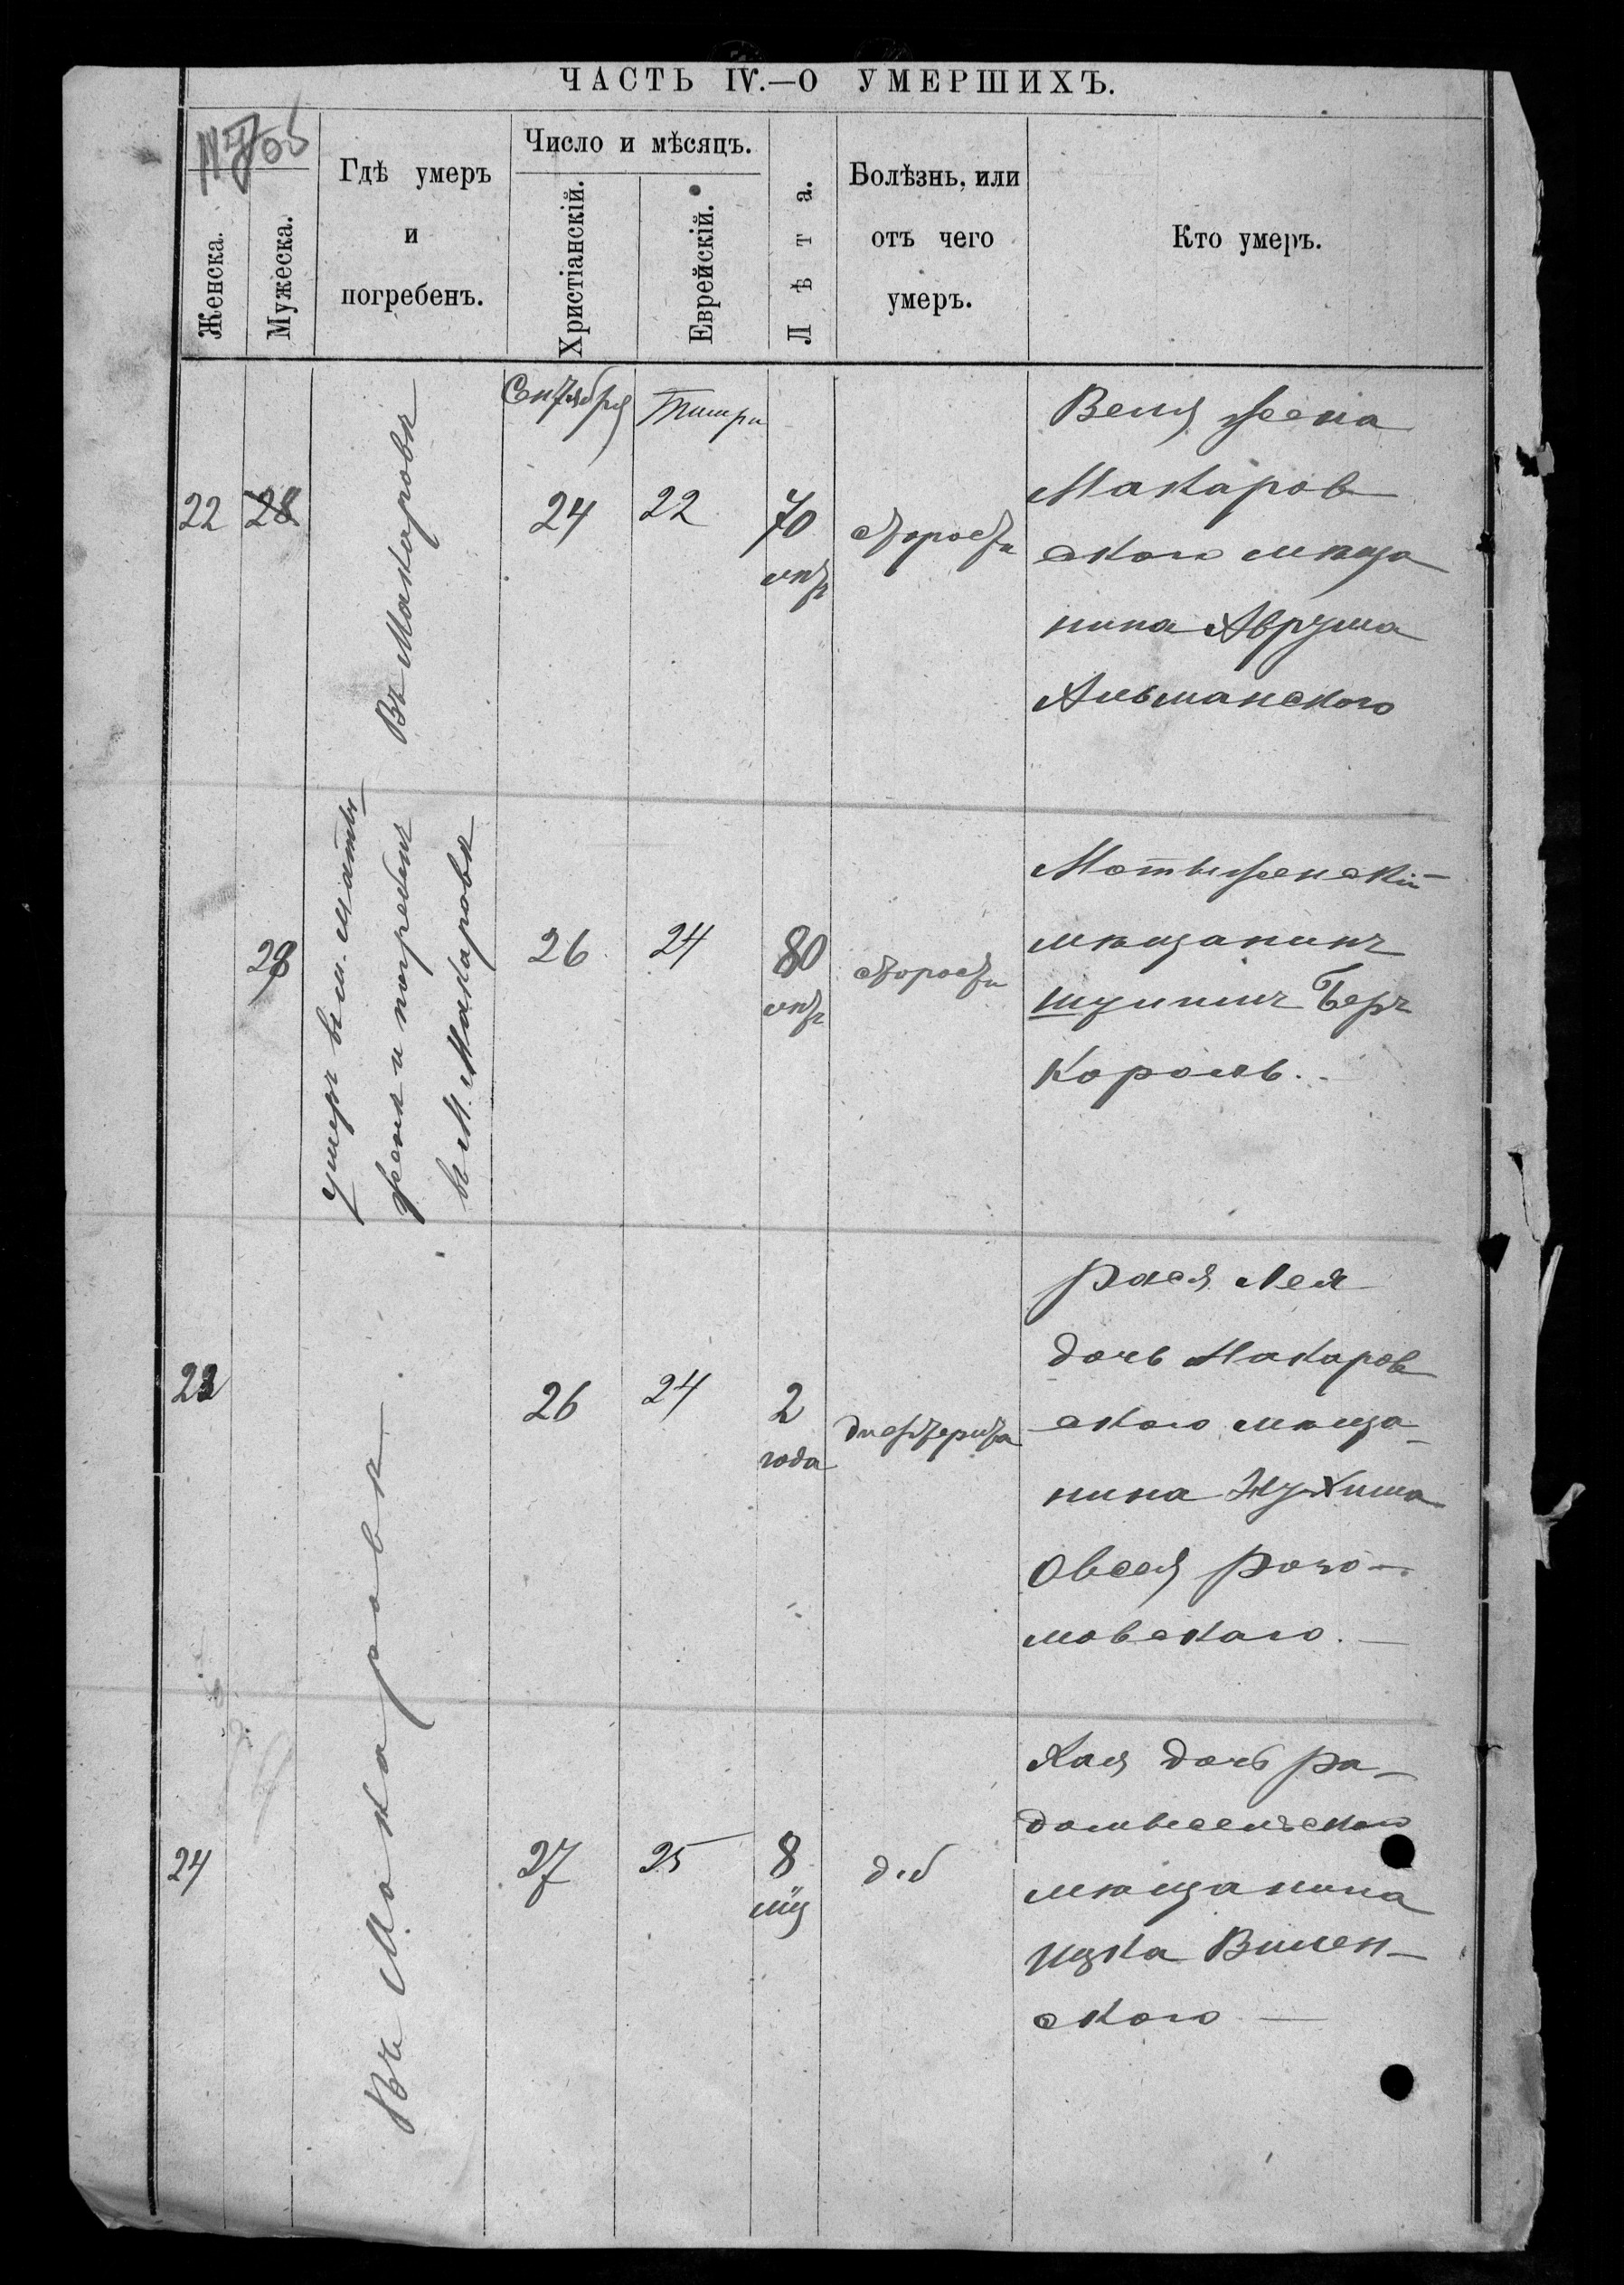 ЧАСТЬ IV.—О УМЕРШИХЪ.
Женска.
Мужеска.
Гдѣ умеръ
и
погребенъ.
Число и мѣсяцъ.
Христіанскій.
Еврейскій.
Лѣта.
Болѣзнь, или
отъ чего
умеръ.
Кто умеръ.
22
28
Въ Макаровѣ
Сентября
24
Тишри
22
70
лѣт
старости
Веля жена
Макаров
ского мѣща
нина Аврума
Альманского
28
умеръ въ м. Маты
женѣ и погребенъ
въ М. Макаровѣ
26
24
80
лѣт
старости
Мотыженскій
мѣщанинъ
Беръ
Король.
23
Въ Макаровѣ
26
24
2
года
дисктерита
Рася Лея
дочь Макаров
ского мѣща-
нина Нухима
Овсея Рого-
мовскаго.
24
27
25
8
мц
Хая дочь Ра-
домысельского
мѣщанина
Ицка Вилен-
ского